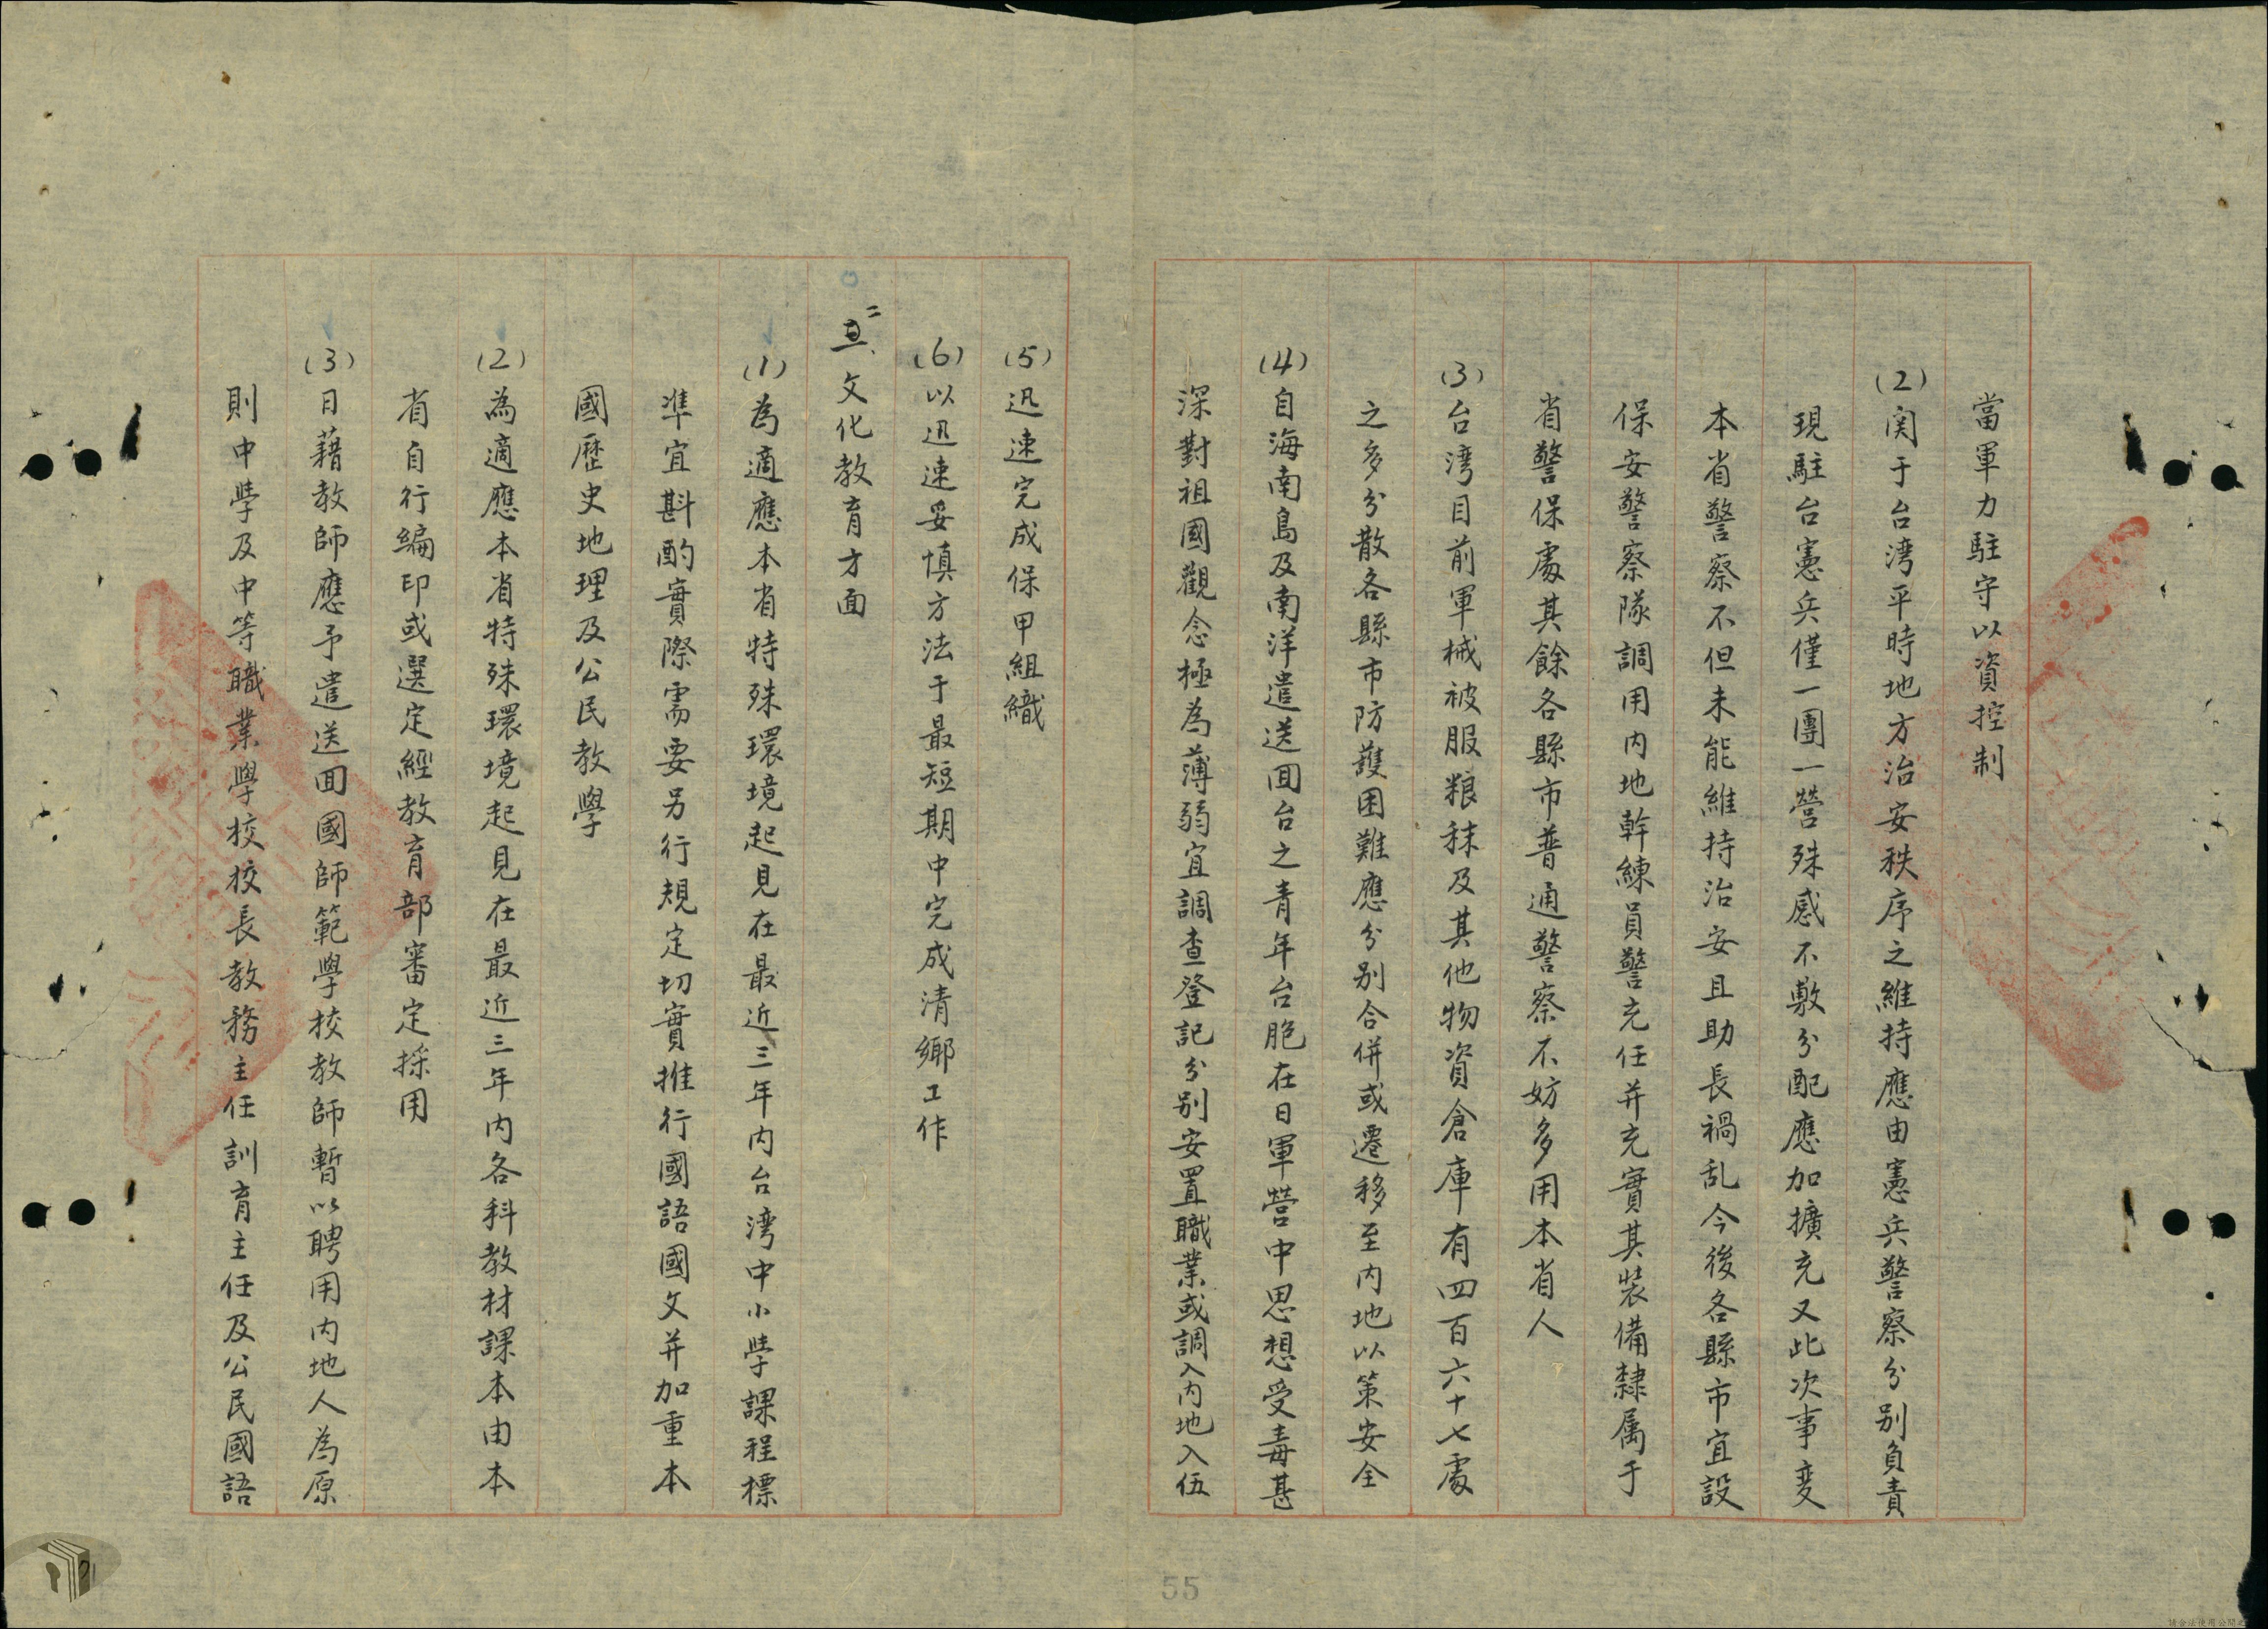 當軍力駐守以資控制
(2)関于台湾平時地方治安秩序之維持應由憲兵警察分别負責
現駐台憲兵僅一團一營殊感不敷分配應加擴充又此次事变
本省警察不但未能維持治安且助長禍乱今後各縣市宜設
保安警察隊調用内地幹練員警充任并充實其裝備隸属于
省警保處其餘各縣市普通警察不妨多用本省人
(3)台湾目前軍械被服粮秣及其他物資倉庫有四百六十七處
之多分散各縣市防護困難應分别合併或遷移至内地以策安全
(4)自海南島及南洋遣送囬台之青年台胞在日軍營中思想受毒甚
深對祖國觀念極為薄弱宜調查登記分别安置職業或調入内地入伍
(5)迅速完成保甲組織
(6)以迅速妥慎方法于最短期中完成清鄉工作
二、文化教育方面
(1)為適應本省特殊環境起見在最近三年内台湾中小學課程標
準宜斟酌實際需要另行規定切實推行國語國文并加重本
國歷史地理及公民教學
(2)為適應本省特殊環境起見在最近三年内各科教材課本由本
省自行編印或選定經教育部審定採用
(3)日藉教師應予遣送囬國師範學校教師暫以聘用内地人為原
則中學及中等職業學校校長教務主任訓育主任及公民國語
55